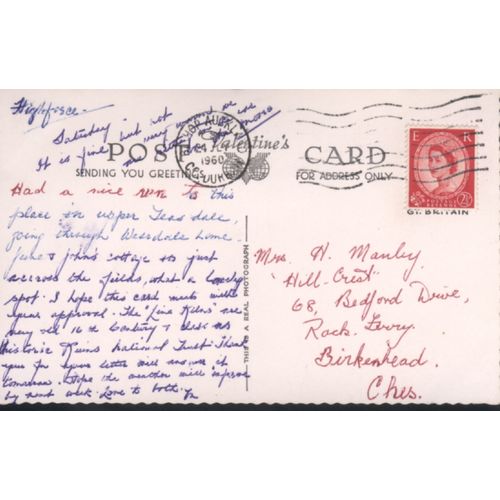 Highforce
Saturday.
It is fine but not
very warm
POST CARD
Valentine's
SENDING YOU GREETINGS
FOR ADDRESS ONLY
BISHOP AUCKLAND
1960
Co. DURHAM
E R
2½
GT. BRITAIN
Had a nice run to this
place in upper Teesdale,
going through Weardale home.
June & John's cottage is just
across the fields, what a lovely
spot. I hope this card meets with
your approval. The "Lime Kilns" are
very old 16 th Century & class as
Historic Ruins National Trust. Thank
you for your letter will answer it
tomorrow. Hope the weather will improve
by next week. Love to both.
THIS IS A REAL PHOTOGRAPH
Mrs. H. Manley
"Hill-Crest"
68, Bedford Drive,
Rock Ferry.
Birkenhead.
Ches.